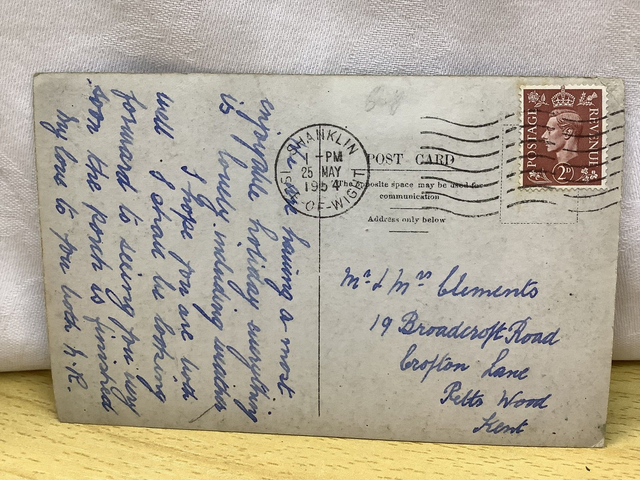 We are having a most
enjoyable holiday everything
is lovely including weather
I hope you are both
well I shall be looking
forward to seeing you very
soon the porch is finished
My love to you both
SHANKLIN
1 - PM
25 MAY
195
ISLE-OF-WIGHT
POST CARD
The opposite space may be used for
communication
Address only below
POSTAGE
REVENUE
2D
Mr & Mrs Clements
19 Broadcroft Road
Crofton Lane
Petts Wood
Kent